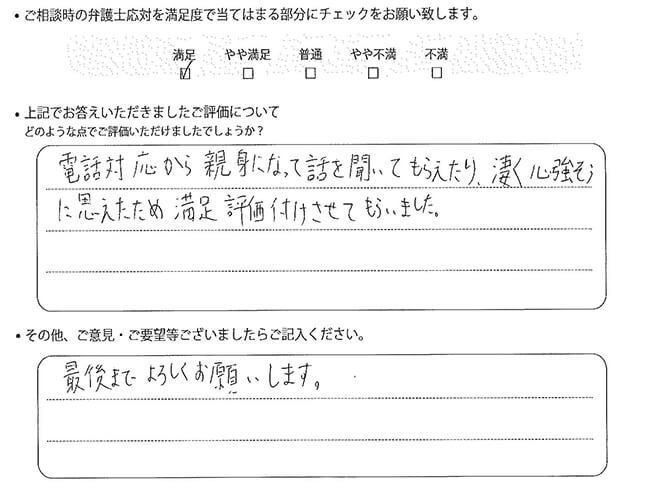 ・ご相談時の弁護士応対を満足度で当てはまる部分にチェックをお願い致します。
満足 やや満足 普通 やや不満 不満
☑ □ □ □ □
・上記でお答えいただきましたご評価について
どのような点でご評価いただけましたでしょうか？
電話対応から親身になって話を聞いてもらえたり、凄く心強そう
に思えたため満足評価付けさせてもらいました。
・その他、ご意見・ご要望等ございましたらご記入ください。
最後までよろしくお願いします。